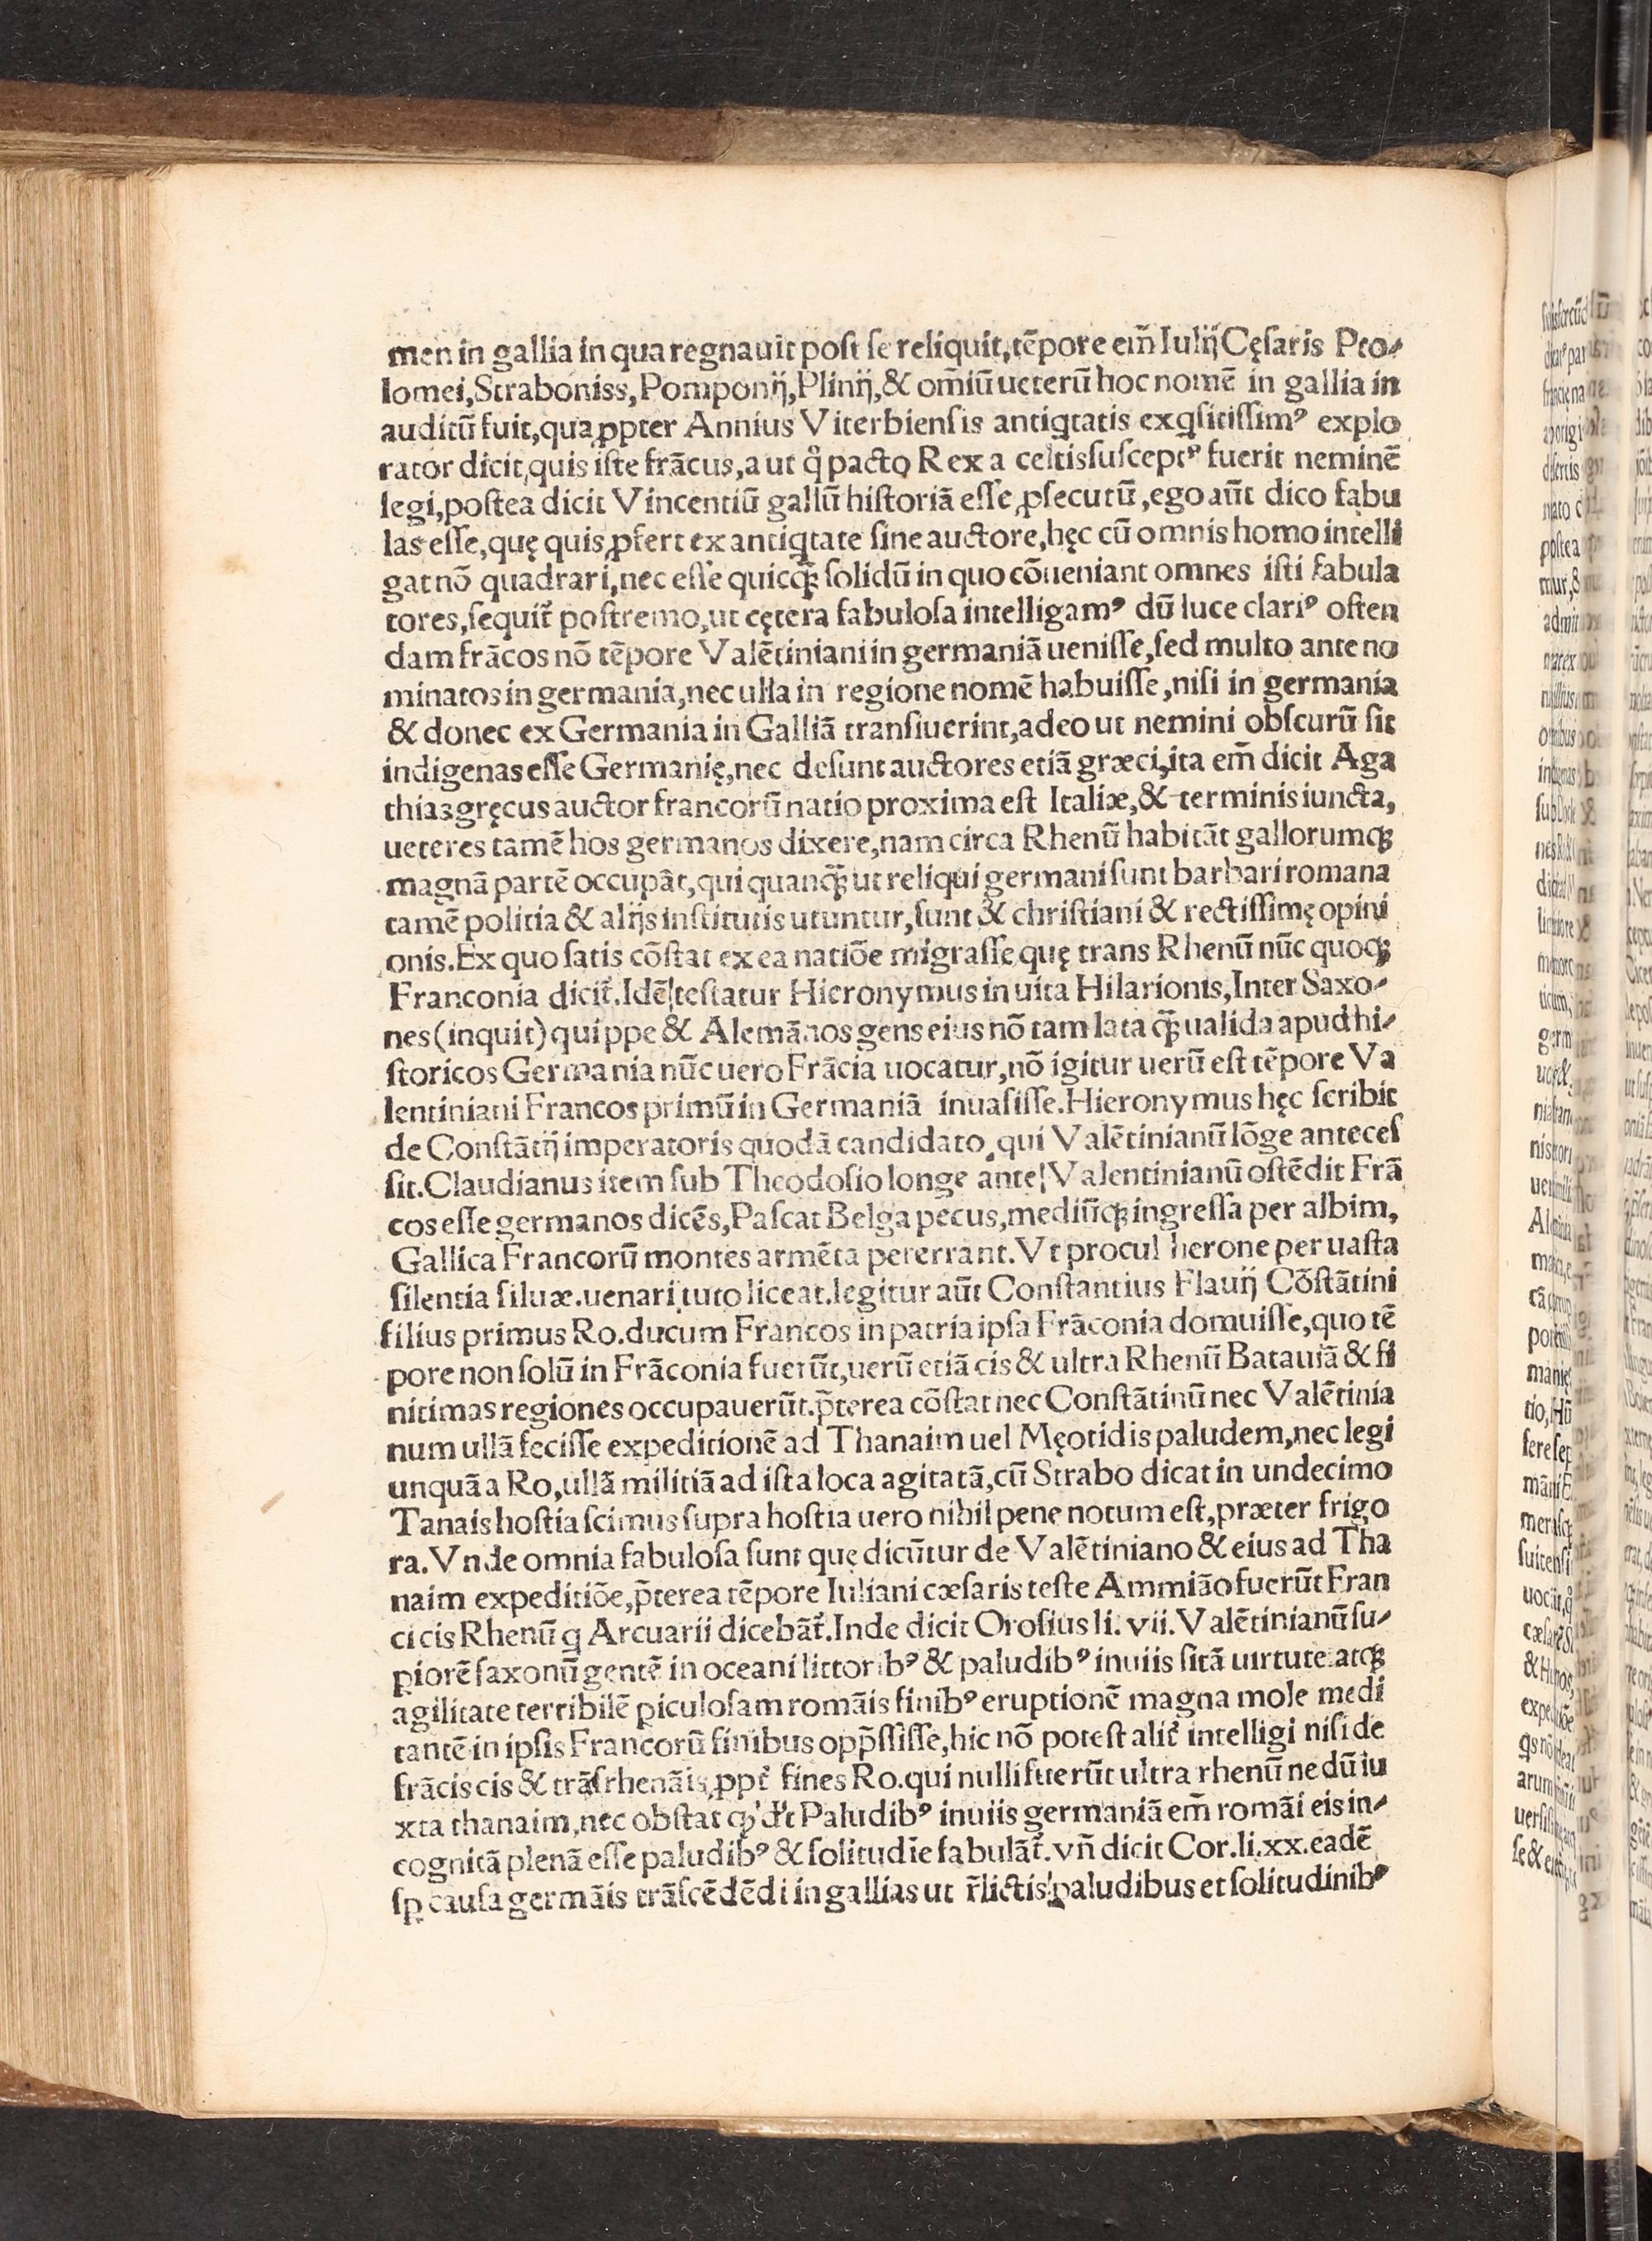 men in gallia in qua regnauit post se reliquit, tēpore em̄ Iulij Cęsaris Pto⸗
lomei, Straboniss, Pomponij, Plinij, & om̄iū ueterū hoc nomē in gallia in
auditū fuit, qua ꝓpter Annius Viterbiensis antiqtatis exqsitissimꝰ explo
rator dicit, quis iste frācus, aut q̊ pacto Rex a celtis susceptꝰ fuerit neminē
legi, postea dicit Vincentiū gallū historiā esse ꝓsecutū, ego aūt dico fabu
las esse, quę quis ꝓfert ex antiqtate sine auctore, hęc cū omnis homo intelli
gat nō quadrari, nec esse quicq̄ꝫ solidū in quo cōueniant omnes isti fabula
tores, sequit̃ postremo, ut cętera fabulosa intelligamꝰ dū luce clariꝰ osten
dam frācos nō tēpore Valētiniani in germaniā uenisse, sed multo ante no
minatos in germania, nec ulla in regione nomē habuisse, nisi in germania
& donec ex Germania in Galliā transiuerint, adeo ut nemini obscurū sit
indigenas esse Germanię, nec desunt auctores etiā græci, ita em̄ dicit Aga
thias gręcus auctor francorū natio proxima est Italiæ, & terminis iuncta,
ueteres tamē hos germanos dixere, nam circa Rhenū habitāt gallorumqꝫ
magnā partē occupāt, qui quanq̄ꝫ ut reliqui germani sunt barbari romana
tamē politia & alijs institutis utuntur, sunt & christiani & rectissimę opini
onis. Ex quo satis cōstat ex ea natiōe migrasse quę trans Rhenū nūc quoqꝫ
Franconia dicit̃. Idē testatur Hieronymus in uita Hilarionis, Inter Saxo⸗
nes (inquit) quippe & Alemānos gens eius nō tam lata q̄ꝫ ualida apud hi⸗
storicos Germania nūc uero Frācia uocatur, nō igitur uerū est tēpore Va
lentiniani Francos primū in Germaniā inuasisse. Hieronymus hęc scribit
de Constātij imperatoris quodā candidato, qui Valētinianū lōge anteces
sit. Claudianus item sub Theodosio longe ante Valentinianū ostēdit Frā
cos esse germanos dicēs, Pascat Belga pecus, mediūqꝫ ingressa per albim,
Gallica Francorū montes armēta pererrant. Vt procul herone per uasta
silentia siluæ. uenari tuto liceat. legitur aūt Constantius Flauij Cōstātini
filius primus Ro. ducum Francos in patria ipsa Frāconia domuisse, quo tē
pore non solū in Frāconia fuerūt, uerū etiā cis & ultra Rhenū Batauiā & fi
nitimas regiones occupauerūt. p̄terea cōstat nec Constātinū nec Valētinia
num ullā fecisse expeditionē ad Thanaim uel Męotidis paludem, nec legi
unquā a Ro, ullā militiā ad ista loca agitatā, cū Strabo dicat in undecimo
Tanais hostia scimus supra hostia uero nihil pene notum est, præter frigo
ra. Vnde omnia fabulosa sunt quę dicūtur de Valētiniano & eius ad Tha
naim expeditiōe, p̄terea tēpore Iuliani cæsaris teste Ammiāo fuerūt Fran
ci cis Rhenū q Arcuarii dicebāt̃. Inde dicit Orosius li. vii. Valētinianū su⸗
ꝑiorē saxonū gentē in oceani littoribꝰ & paludibꝰ inuiis sitā uirtute atqꝫ
agilitate terribilē ꝑiculosam romāis finibꝰ eruptionē magna mole medi
tantē in ipsis Francorū finibus opp̄ssisse, hic nō potest alit̃ intelligi nisi de
frāciscis & trāsrhenāis ꝓpt̃ fines Ro. qui nulli fuerūt ultra rhenū nedū iu
xta thanaim, nec obstat ꝙ dr̃t Paludibꝰ inuiis germaniā em̄ romāi eis in⸗
cognitā plenā esse paludibꝰ & solitudīe fabulāt̃. vñ dicit Cor. li. xx. eadē
sꝑ causa germāis trāscēdēdi in gallias ut r̄lictis paludibus et solitudinibꝰ